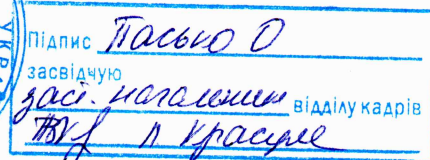 УКРА
Підпис Пасько О
засвідчую
заст. начальник відділу кадрів
Л Красуля